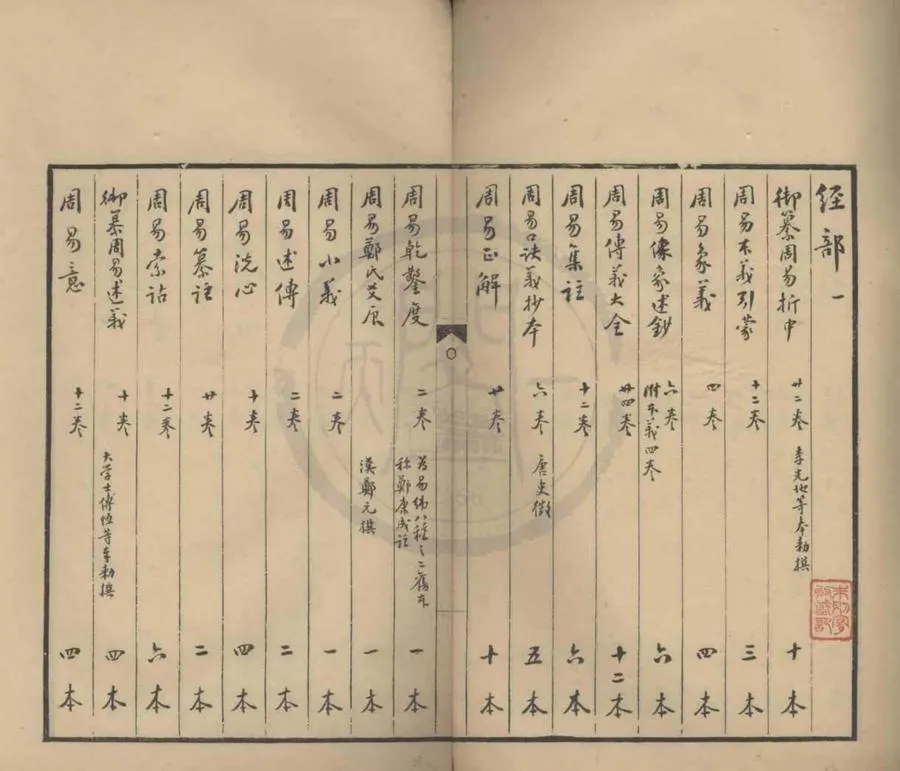 经部一
御纂周易折中 廿二卷 李光地等奉勅撰 十本
周易本義引蒙 十二卷 三本
周易象義 四卷 四本
周易像象述鈔 六卷 附本義四卷 六本
周易傳義大全 廿四卷 十二本
周易集註 十二卷 六本
周易口訣義抄本 六卷 唐史徵 五本
周易正解 廿卷 十本
周易乾鑿度 二卷 為易緯八種之二舊本 称鄭康成註 一本
周易鄭氏爻辰 二卷 漢鄭元撰 一本
周易小義 二卷 一本
周易述傳 二卷 二本
周易洗心 十卷 四本
周易纂註 廿卷 二本
周易索詁 十二卷 六本
御纂周易述義 十卷 大学士傅恒等奉勅撰 四本
周易意 十二卷 四本